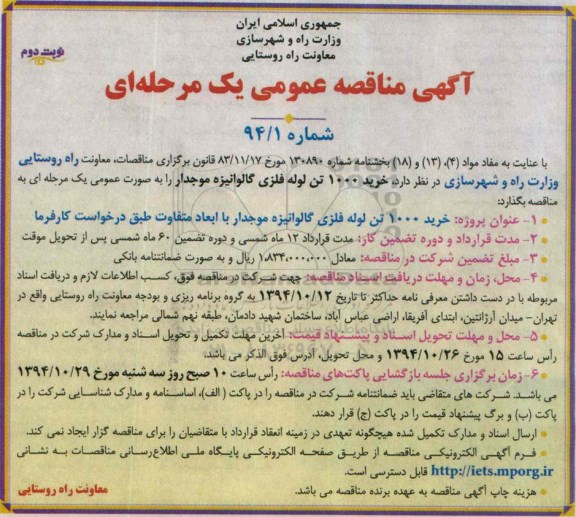 جمهوری اسلامی ایران
وزارت راه و شهرسازی
معاونت راه روستایی
نوبت دوم
آگهی مناقصه عمومی یک مرحله‌ای
شماره ۹۴/۱
با عنایت به مفاد مواد (۴)، (۱۳) و (۱۸) بخشنامه شماره ۱۳۰۸۹۰ مورخ ۸۳/۱۱/۱۷ قانون برگزاری مناقصات، معاونت راه روستایی
وزارت راه و شهرسازی در نظر دارد، خرید ۱۰۰۰ تن لوله فلزی گالوانیزه موجدار را به صورت عمومی یک مرحله ای به
مناقصه بگذارد:
۱- عنوان پروژه: خرید ۱۰۰۰ تن لوله فلزی گالوانیزه موجدار با ابعاد متفاوت طبق درخواست کارفرما
۲- مدت قرارداد و دوره تضمین کار: مدت قرارداد ۱۲ ماه شمسی و دوره تضمین ۶۰ ماه شمسی پس از تحویل موقت
۳- مبلغ تضمین شرکت در مناقصه: معادل ۱,۸۳۴,۰۰۰,۰۰۰ ریال و به صورت ضمانتنامه بانکی
۴- محل، زمان و مهلت دریافت اسناد مناقصه: جهت شرکت در مناقصه فوق، کسب اطلاعات لازم و دریافت اسناد
مربوطه با در دست داشتن معرفی نامه حداکثر تا تاریخ ۱۳۹۴/۱۰/۱۲ به گروه برنامه ریزی و بودجه معاونت راه روستایی واقع در
تهران- میدان آرژانتین، ابتدای آفریقا، اراضی عباس آباد، ساختمان شهید دادمان، طبقه نهم شمالی مراجعه نمایند.
۵- محل و مهلت تحویل اسناد و پیشنهاد قیمت: آخرین مهلت تکمیل و تحویل اسناد و مدارک شرکت در مناقصه
رأس ساعت ۱۵ مورخ ۱۳۹۴/۱۰/۲۶ و محل تحویل، آدرس فوق الذکر می باشد.
۶- زمان برگزاری جلسه بازگشایی پاکت‌های مناقصه: رأس ساعت ۱۰ صبح روز سه شنبه مورخ ۱۳۹۴/۱۰/۲۹
می باشد. شرکت های متقاضی باید ضمانتنامه شرکت در مناقصه را در پاکت (الف)، اساسنامه و مدارک شناسایی شرکت را در
پاکت (ب) و برگ پیشنهاد قیمت را در پاکت (ج) قرار دهند.
• ارسال اسناد و مدارک تکمیل شده هیچگونه تعهدی در زمینه انعقاد قرارداد با متقاضیان را برای مناقصه گزار ایجاد نمی کند.
• فرم آگهی الکترونیکی مناقصه از طریق صفحه الکترونیکی پایگاه ملی اطلاع‌رسانی مناقصات به نشانی
http://iets.mporg.ir قابل دسترسی است.
• هزینه چاپ آگهی مناقصه به عهده برنده مناقصه می باشد.
معاونت راه روستایی